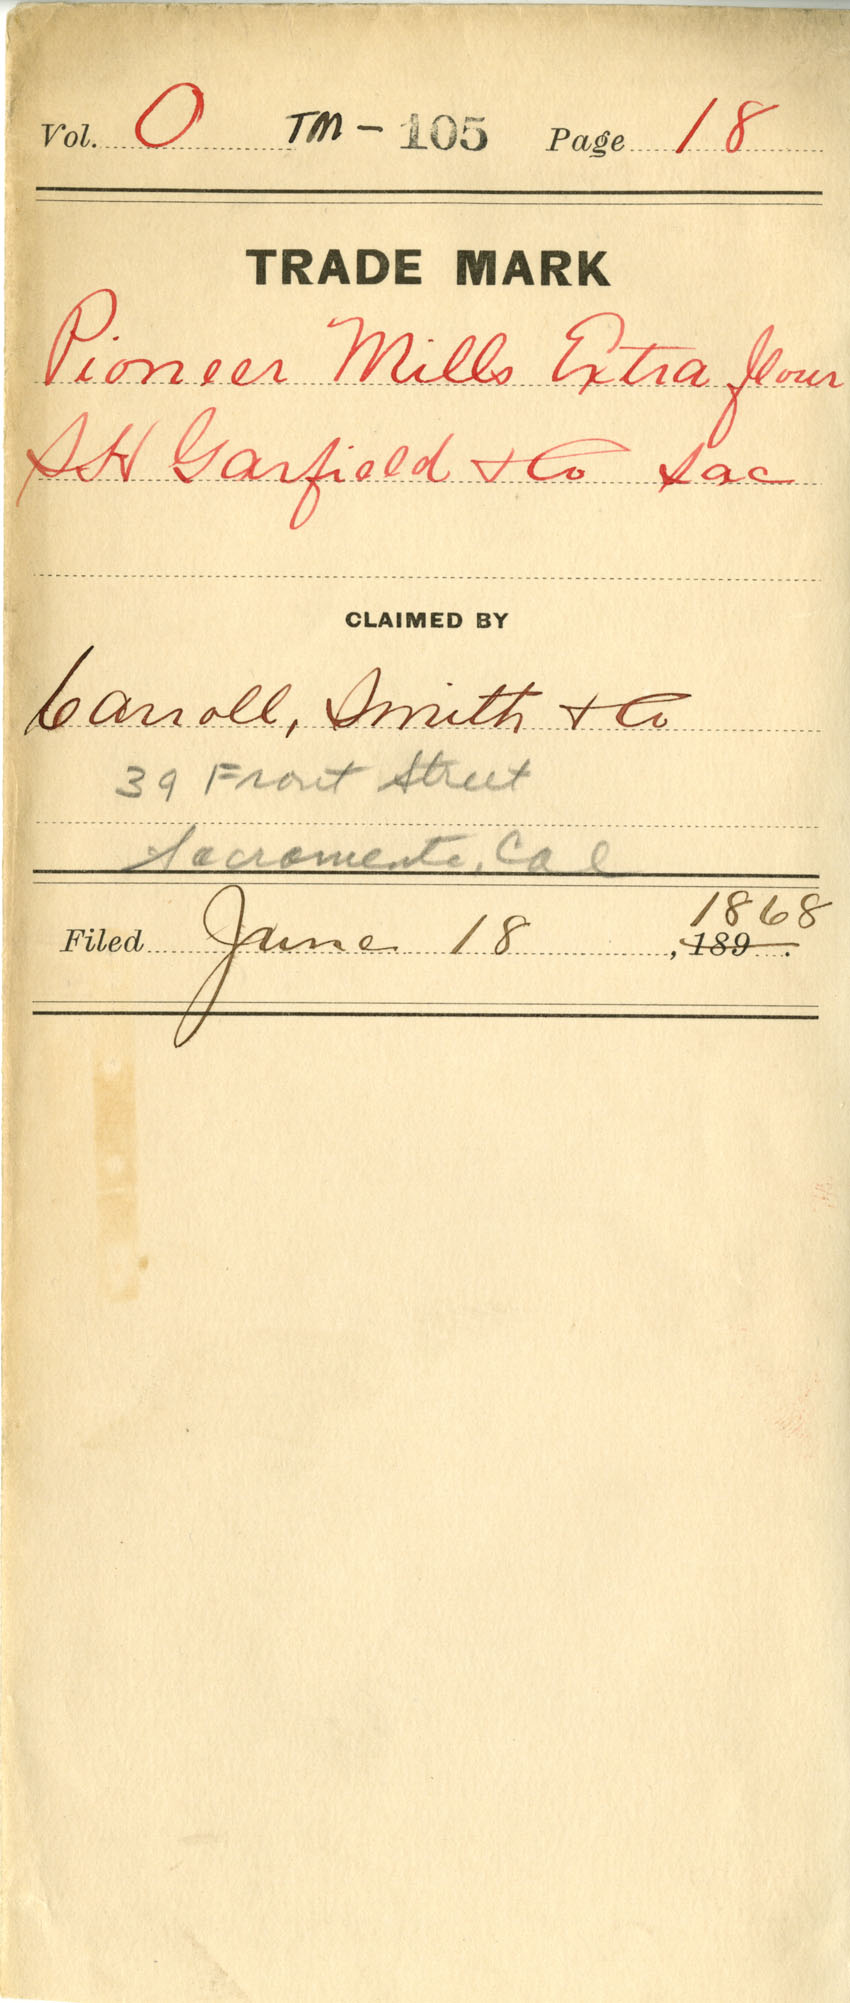 Vol. O TM - 105 Page 18
TRADE MARK
Pioneer Mills Extra flour
SH Garfield + Co Sac
CLAIMED BY
Carroll, Smith + Co
39 Front Street
Sacramento, Cal
1868
Filed June 18, 189 .